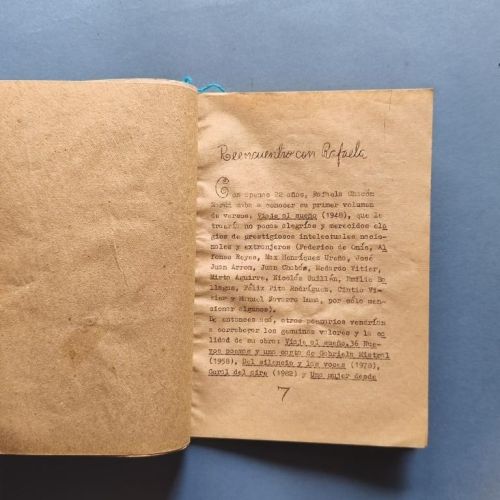 Reencuentro con Rafaela
Con apenas 22 años, Rafaela Chacón
Nardi daba a conocer su primer volumen
de versos, Viaje al sueño (1948), que le
traería no pocas alegrías y merecidos elo
gios de prestigiosos intelectuales nacio-
nales y extranjeros (Federico de Onís, Al
fonso Reyes, Max Henríques Ureño, José
Juan Arrom, Juan Chabás, Medardo Vitier,
Mirta Aguirre, Nicolás Guillén, Emilio Ba
llagas, Félix Pita Rodríguez, Cintio Vi-
tier y Manuel Navarro Luna, por sólo men-
cionar algunos).
De entonces acá, otros poemarios vendrían
a corroborar los genuinos valores y la ca
lidad de su obra: Viaje al sueño.36 Nue-
vos poemas y una carta de Gabriela Mistral
(1958), Del silencio y las voces (1978),
Coral del aire (1982) y Una mujer desde
7